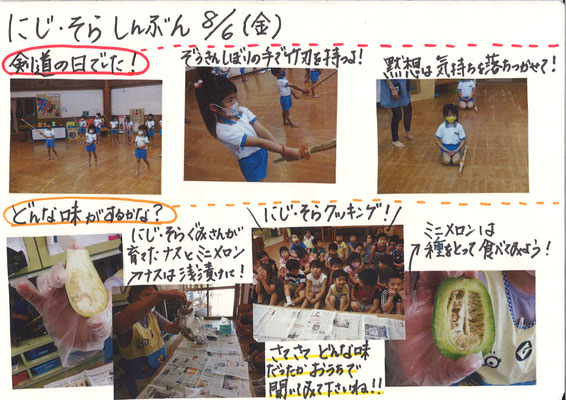 にじ・そら しんぶん 8/6(金)
剣道の日でした!
ぞうきんしぼりの手で竹刀を持つよ!
黙想は気持ちを落ちつかせて!
どんな味がするかな?
にじ・そらぐみさんが
育てたナスとミニメロン
ナスは浅漬けに!
にじ・そらクッキング!
さてさて どんな味
だったか おうちで
聞いてみて下さいね!!
ミニメロンは
種をとって食べてみよう!